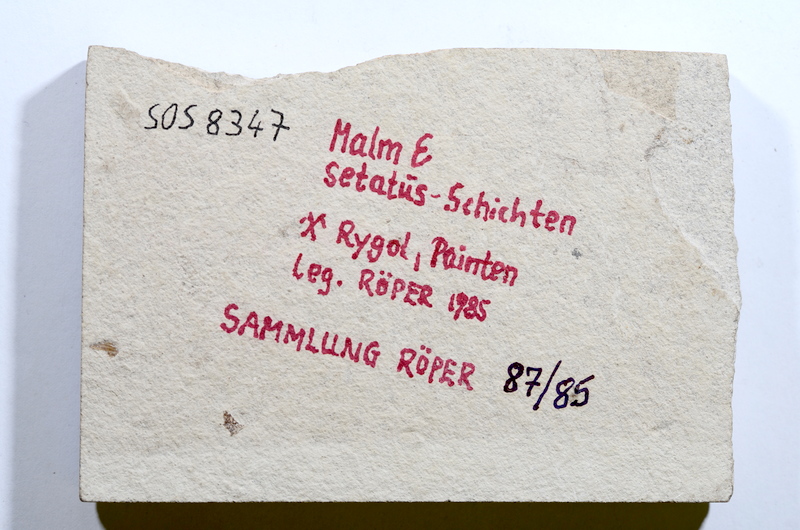 SOS 8347
Malm ε
setatus-Schichten
X Rygol, Painten
leg. RÖPER 1985
SAMMLUNG RÖPER 87/85